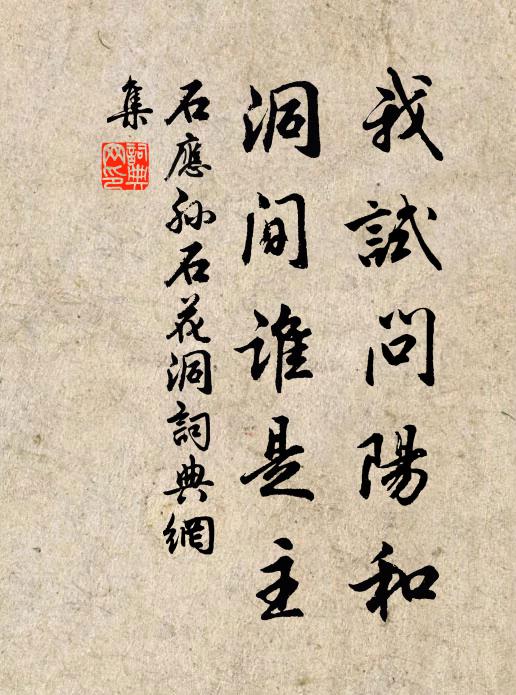 我試問陽和
洞間誰是主
石應孫石花洞詞典網
集
詞典網印